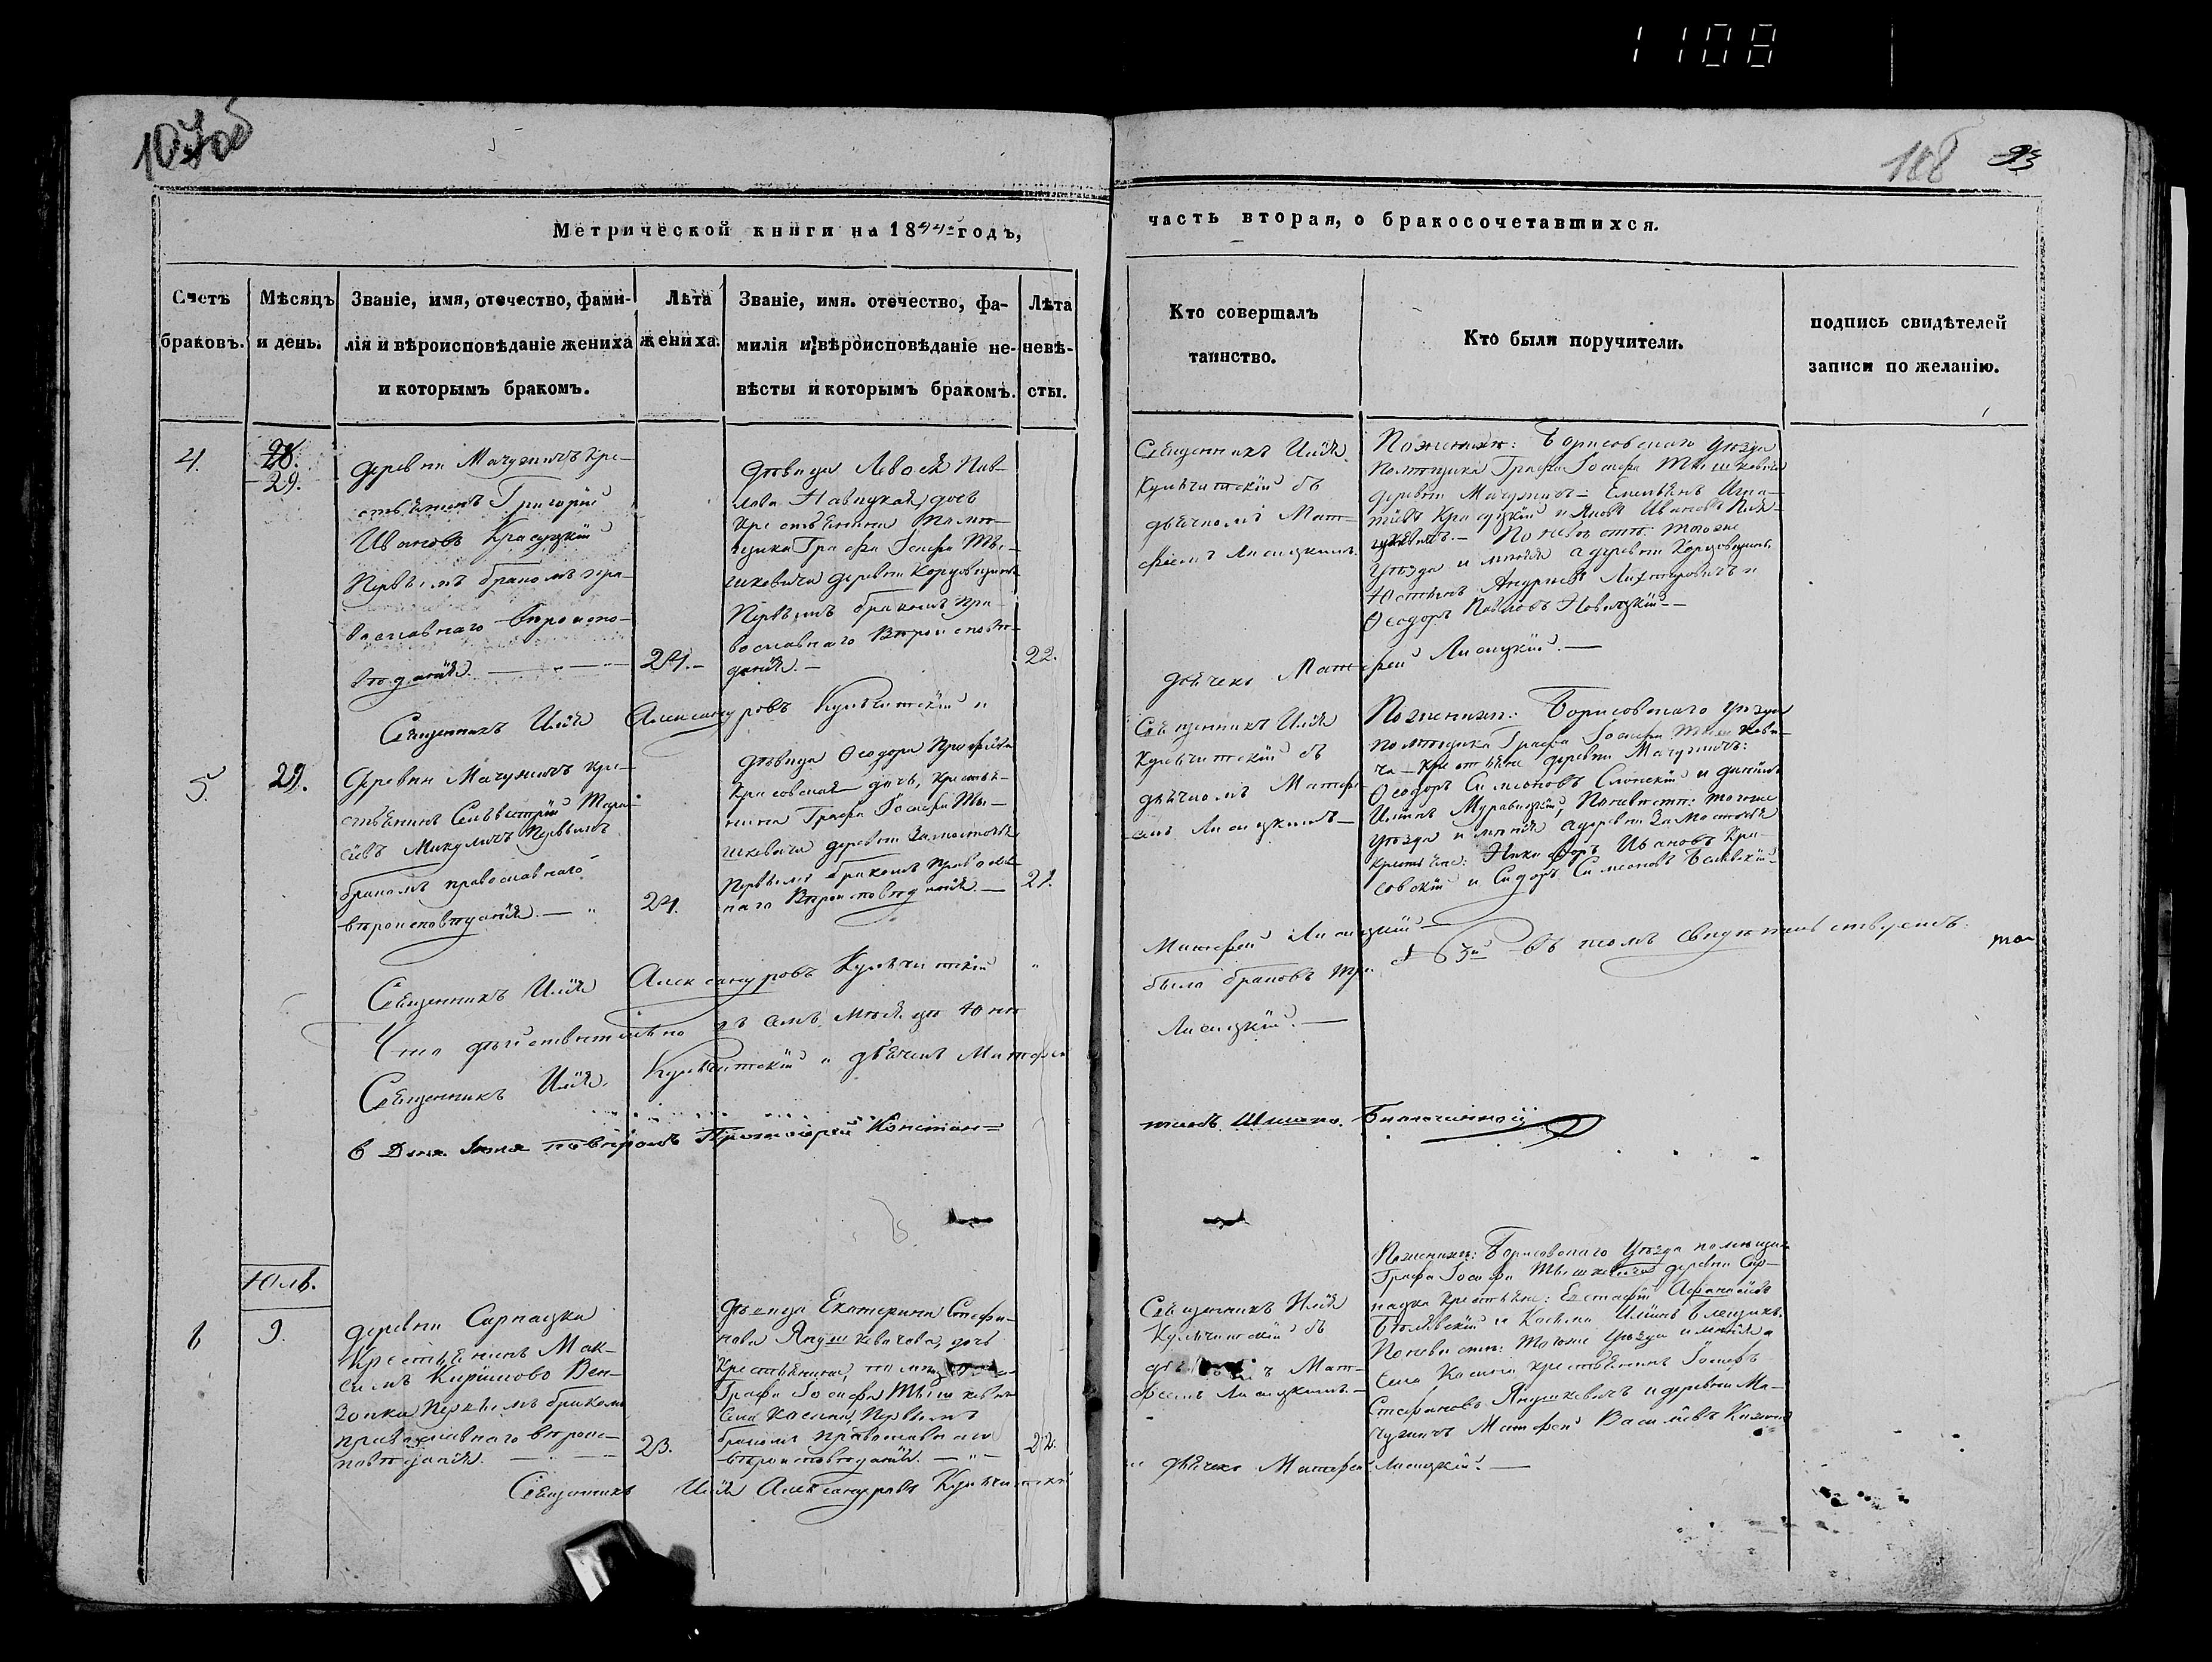 1108
107об
108 93
Метрической книги на 1844 годъ,
часть вторая, о бракосочетавшихся.
Счетъ браковъ.
Мѣсяцъ и день.
Званіе, имя, отечество, фами-
лія и вѣроисповѣданіе жениха
и которымъ бракомъ.
Лѣта
жениха.
Званіе, имя. отечество, фа-
милія и вѣроисповѣданіе не-
вѣсты и которымъ бракомъ.
Лѣта
невѣ-
сты.
Кто совершалъ
таинство.
Кто были поручители.
подпись свидѣтелей
записи по желанію.
4.
28.
29.
деревни Мачужичъ Кре-
стьянинъ Григорій
Ивановъ Красуцкій
Первымъ бракомъ пра-
вославнаго вѣроиспо-
вѣданія.
24.
дѣвица Пав-
лова Навицкая, дочь
Крестьянина помѣ-
щика Графа Іосифа Ты-
шкевича деревни
Первымъ бракомъ пра-
вославнаго Вѣроисповѣ-
данія.
22.
Священникъ Илія
Кульчитскій съ
дьячкомъ Мат-
фіемъ Лисицкимъ.
По женихѣ: Борисовскаго уѣзда
помѣщика Графа Іосифа Тышкевича
деревни Мачужичъ Емельянъ Игна-
тіевъ Красуцкій и Яковъ Ивановъ
По невѣстѣ: тогоже
уѣзда и имѣнія а деревни
Юстинъ Андреевъ и
Ѳеодоръ Павловъ Новицкій
Священникъ Илія Александровъ Кульчитскій и
дьячекъ Матфей Лисицкій.
5.
29.
Деревни Мачужичъ кре-
стьянинъ Сильвестрій Тара-
сіевъ Микуличъ Первымъ
бракомъ православнаго
вѣроисповѣданія.
24.
дѣвица Ѳеодора
Красовская дочь, крестья-
нина Графа Іосифа Ты-
шкевича деревни Замосточья
Первымъ бракомъ православ-
наго Вѣроисповѣданія.
21.
Священникъ Илія
Кульчитскій съ
дьячкомъ Матфе-
емъ Лисицкимъ
По женихѣ: Борисовскаго уѣзда
помѣщика Графа Іосифа Тышкеви-
ча крестьяне деревни Мачужичъ:
Ѳеодоръ Симеоновъ Слонскій и
Муравицкій, По невѣстѣ: тогоже
уѣзда и имѣнія а деревни Замосточья
крестьяне: Никифоръ Ивановъ Кра-
совскій и Сидоръ Симеоновъ
Священникъ Илія Александровъ Кульчитскій
Матфей Лисицкій
Что дѣйствительно въ семъ мѣсяцѣ Юнѣ
было браковъ три № 3й въ томъ свидѣтельствуемъ:
Священникъ Илія Кульчитскій и дьячекъ Матфей
Лисицкій.
6 Дня Іюля повѣрялъ Протоіерей Констан-
тинъ Благочинный
Юль.
6
9.
деревни Сарнацка
Крестьянинъ Мак-
симъ Кириллово
Первымъ бракомъ
православнаго вѣроис-
повѣданія.
23.
дѣвица Екатерина Стефа-
нова Янушкевичева, дочь
Крестьянина,
Графа Іосифа Тышкевича
Села Первымъ
бракомъ православнаго
вѣроисповѣданія.
22.
Священникъ Илія
Кульчитскій съ
Мат-
феемъ Лисицкимъ.
По женихѣ: Борисовскаго уѣзда помѣщика
Графа Іосифа Тышкевича деревни Сар-
нацка крестьяне: Евстафій Афанасіевъ
и Косьма Иліинъ
По невѣстѣ: тогоже уѣзда имѣнія а
Села крестьянинъ Іосифъ
Стефановъ Янушкевичъ и деревни Ма-
чужичъ Матфей Василіевъ
Священникъ Илія Александровъ Кульчитскій
и дьячекъ Матфей Лисицкій.